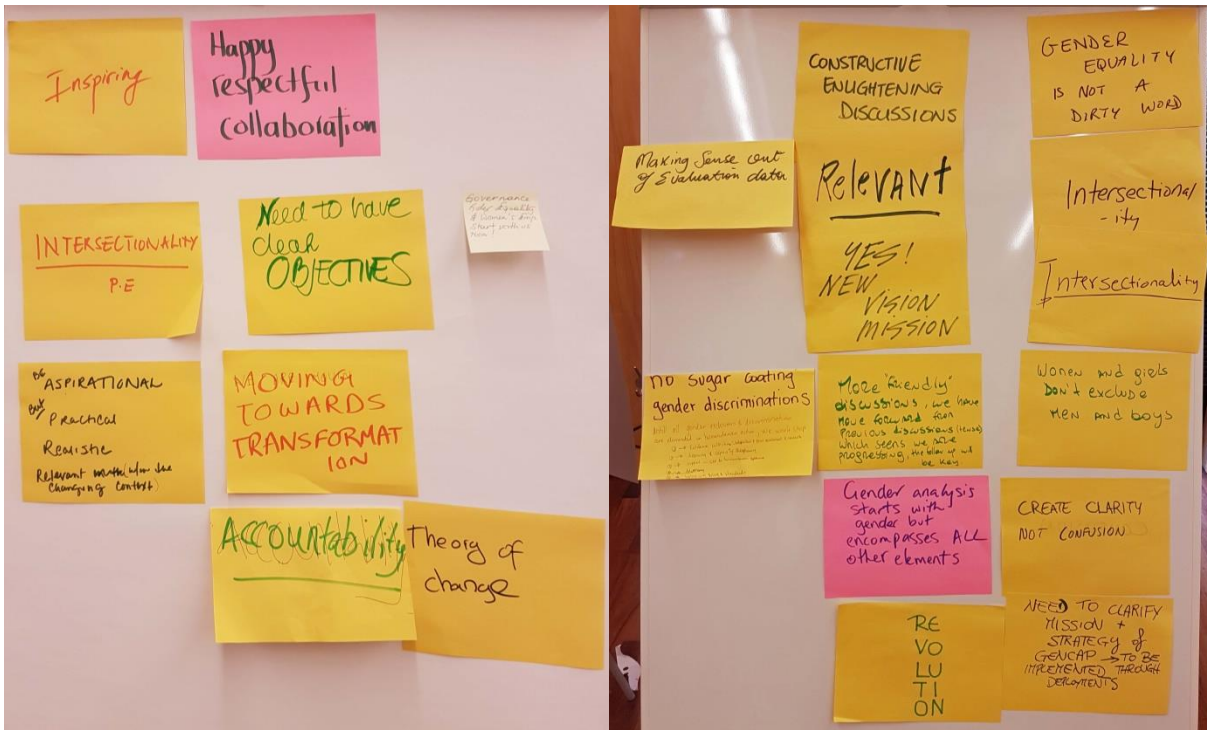 Inspiring
Happy
respectful
collaboration
INTERSECTIONALITY
P.E
Need to have
clear
OBJECTIVES
Governance
BE ASPIRATIONAL
BUT Practical
Realistic
Relevant
changing context)
MOVING
TOWARDS
TRANSFORMAT
ION
ACCOUNtability
Theory of
change
Making Sense out
of Evaluation data
CONSTRUCTIVE
ENLIGHTENING
DISCUSSIONS
RelevANt
YES!
NEW
VISION
MISSION
GENDER
EQUALITY
IS NOT A
DIRTY WORD
Intersectional
-ity
Intersectionality
no sugar coating
gender discriminations
More "friendly"
discussions, we have
move forward from
previous discussions (tense)
which seems we are
progressing, the follow up will
be key
Women and girls
Don't exclude
Men and boys
Gender analysis
starts with
gender but
encompasses ALL
other elements
CREATE CLARITY
NOT CONFUSION
RE
VO
LU
TI
ON
NEED TO CLARIFY
MISSION +
STRATEGY of
GENCAP → TO BE
IMPLEMENTED THROUGH
DEPLOYMENTS